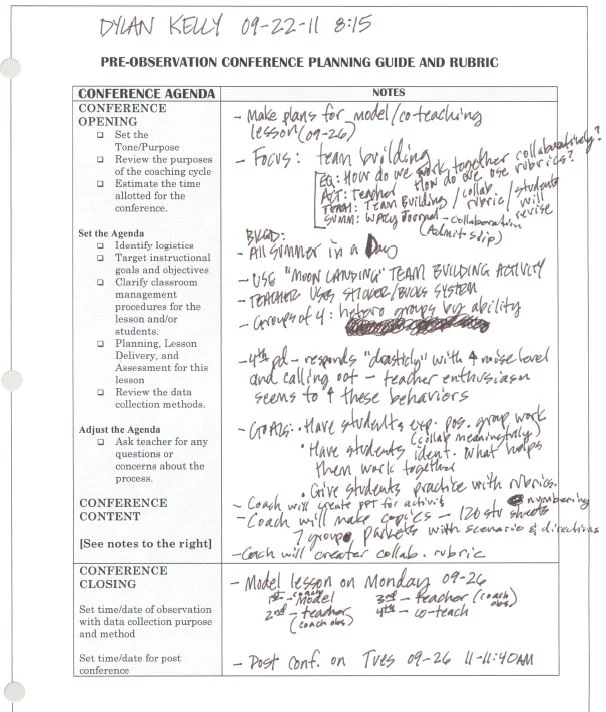 DYLAN KELLY 09-22-11 8:15
PRE-OBSERVATION CONFERENCE PLANNING GUIDE AND RUBRIC
CONFERENCE AGENDA
NOTES
CONFERENCE
OPENING
Set the
Tone/Purpose
Review the purposes
of the coaching cycle
Estimate the time
allotted for the
conference.
Set the Agenda
Identify logistics
Target instructional
goals and objectives
Clarify classroom
management
procedures for the
lesson and/or
students.
Planning, Lesson
Delivery, and
Assessment for this
lesson
Review the data
collection methods.
Adjust the Agenda
Ask teacher for any
questions or
concerns about the
process.
CONFERENCE
CONTENT
[See notes to the right]
- Make plans for model/co-teaching
lesson (09-26)
- Focus: team building
EQ: How do we work together collaboratively?
How do we use rubrics?
ACT: Teacher
TEAM: Team Building / collab rubric / students will revise
SUMM: Wacky Journal - Collaboration
(Admit slip)
BKGD:
- All Summer in a Day
- USE "MOON LANDING" TEAM BUILDING ACTIVITY
- TEACHER USES STICKER/BUCKS SYSTEM
- Groups of 4: hetero groups by ability
- 4th pd - responds "drasticly" with ↑ noise level
and calling out - teacher enthusiasm
seems to ↑ these behaviors
- GOALS: • Have students exp. pos. group work
(collab meaningfully)
• Have students ident. what helps
them work together
• Give students practice with rubrics.
- Coach will create PPT for activity
numbering
- Coach will make copies - 120 stu sheets
7 groups packets with scenario & directions
- Coach will creater collab. rubric
CONFERENCE
CLOSING
Set time/date of observation
with data collection purpose
and method
Set time/date for post
conference
- Model lesson on Monday 09-26
1st - coach model 3rd - teacher (coach obs)
2nd - teacher (coach obs) 4th - co-teach
- Post Conf. on Tues 09-26 11-11:40AM